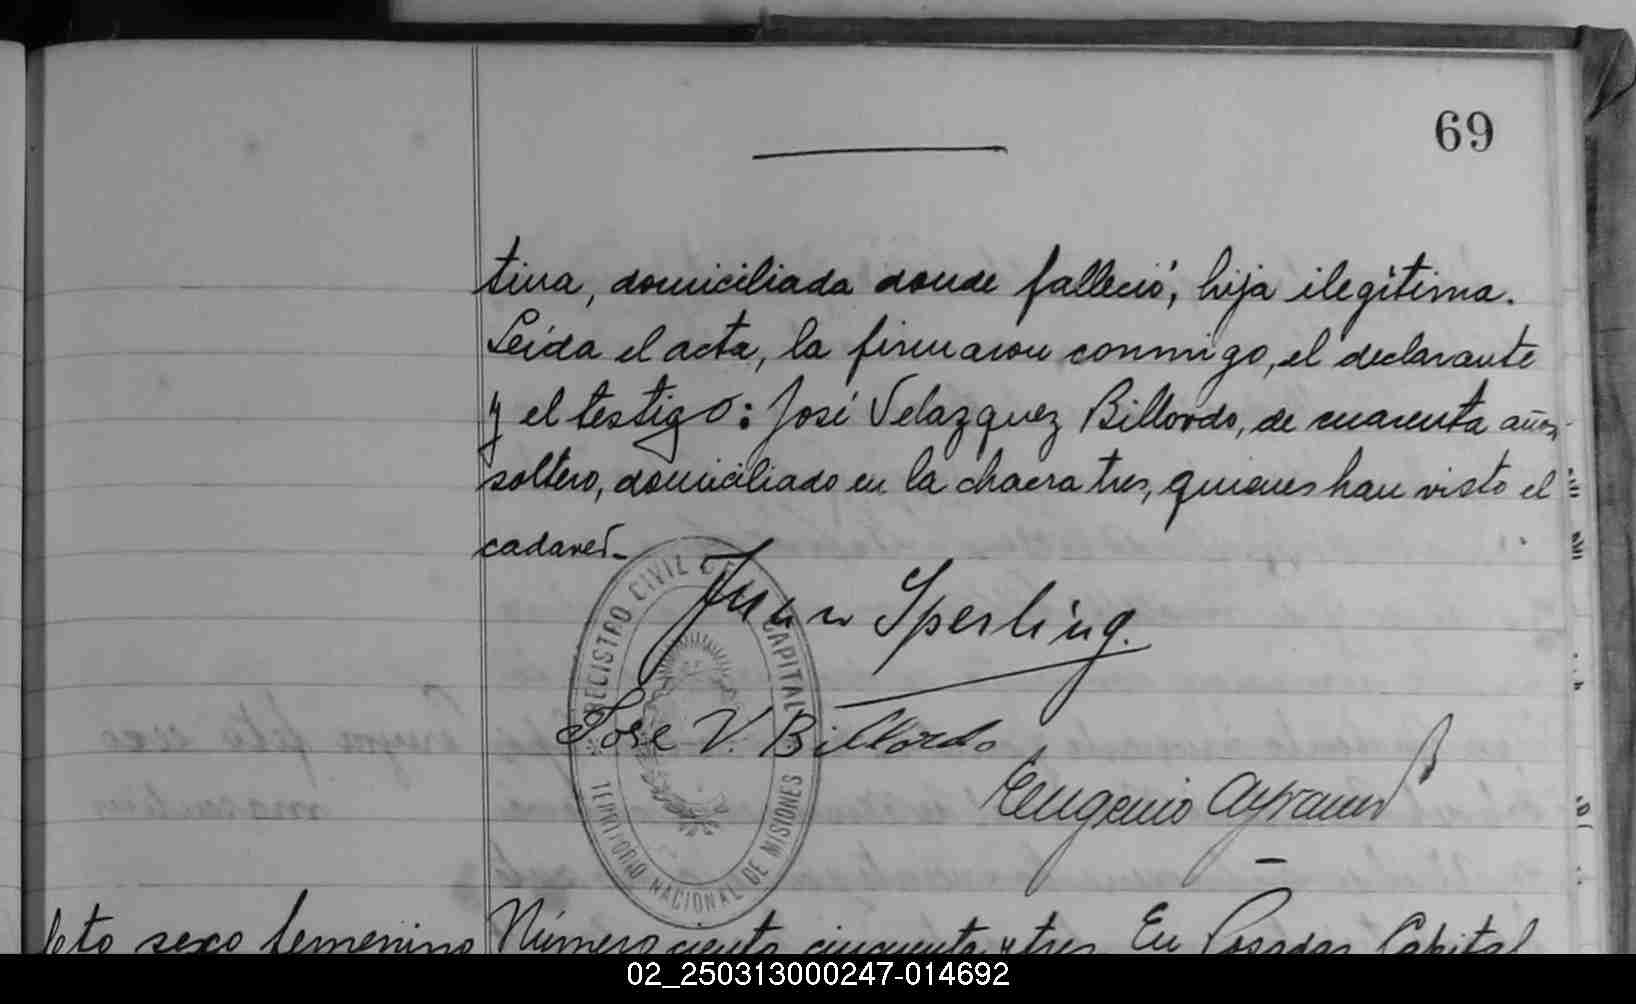 69
tina, domiciliada donde falleció, hija ilegítima.
Leída el acta, la firmaron conmigo, el declarante
y el testigo: José Velazquez Billordo, de cuarenta años,
soltero, domiciliado en la chacra tres, quienes han visto el
cadaver.-
Juan Sperling.
José V. Billordo
Eugenio
REGISTRO CIVIL DE CAPITAL
TERRITORIO NACIONAL DE MISIONES
feto sexo femenino
Número ciento cincuenta y tres. En Posadas Capital
02_250313000247-014692